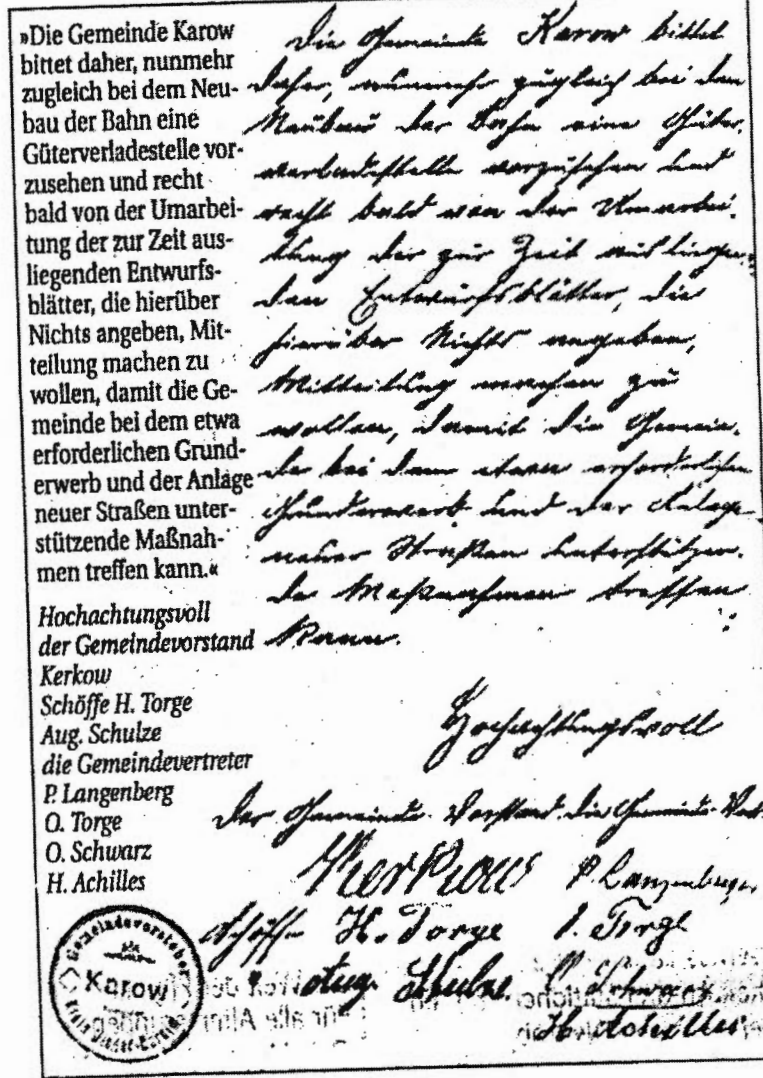 »Die Gemeinde Karow
bittet daher, nunmehr
zugleich bei dem Neu-
bau der Bahn eine
Güterverladestelle vor-
zusehen und recht
bald von der Umarbei-
tung der zur Zeit aus-
liegenden Entwurfs-
blätter, die hierüber
Nichts angeben, Mit-
teilung machen zu
wollen, damit die Ge-
meinde bei dem etwa
erforderlichen Grund-
erwerb und der Anlage
neuer Straßen unter-
stützende Maßnah-
men treffen kann.«
Hochachtungsvoll
der Gemeindevorstand
Kerkow
Schöffe H. Torge
Aug. Schulze
die Gemeindevertreter
P. Langenberg
O. Torge
O. Schwarz
H. Achilles
Die Gemeinde Karow bittet
daher, nunmehr zugleich bei dem
Neubau der Bahn eine Güter-
verladestelle vorzusehen und
recht bald von der Umarbei-
tung der zur Zeit ausliegen-
den Entwurfsblätter, die
hierüber Nichts angeben,
Mitteilung machen zu
wollen, damit die Gemein-
de bei dem etwa erforderlichen
Grunderwerb und der Anlage
neuer Straßen unterstützen-
de Maßnahmen treffen
kann.
Hochachtungsvoll
Der Gemeinde-Vorstand. die Gemeinde-Vert
Kerkow P. Langenberg
Schöffe H. Torge O. Torge
" Aug. Schulze O. Schwarz
H. Achilles
Gemeindevorsteher
Karow
Kreis Nieder-Barnim